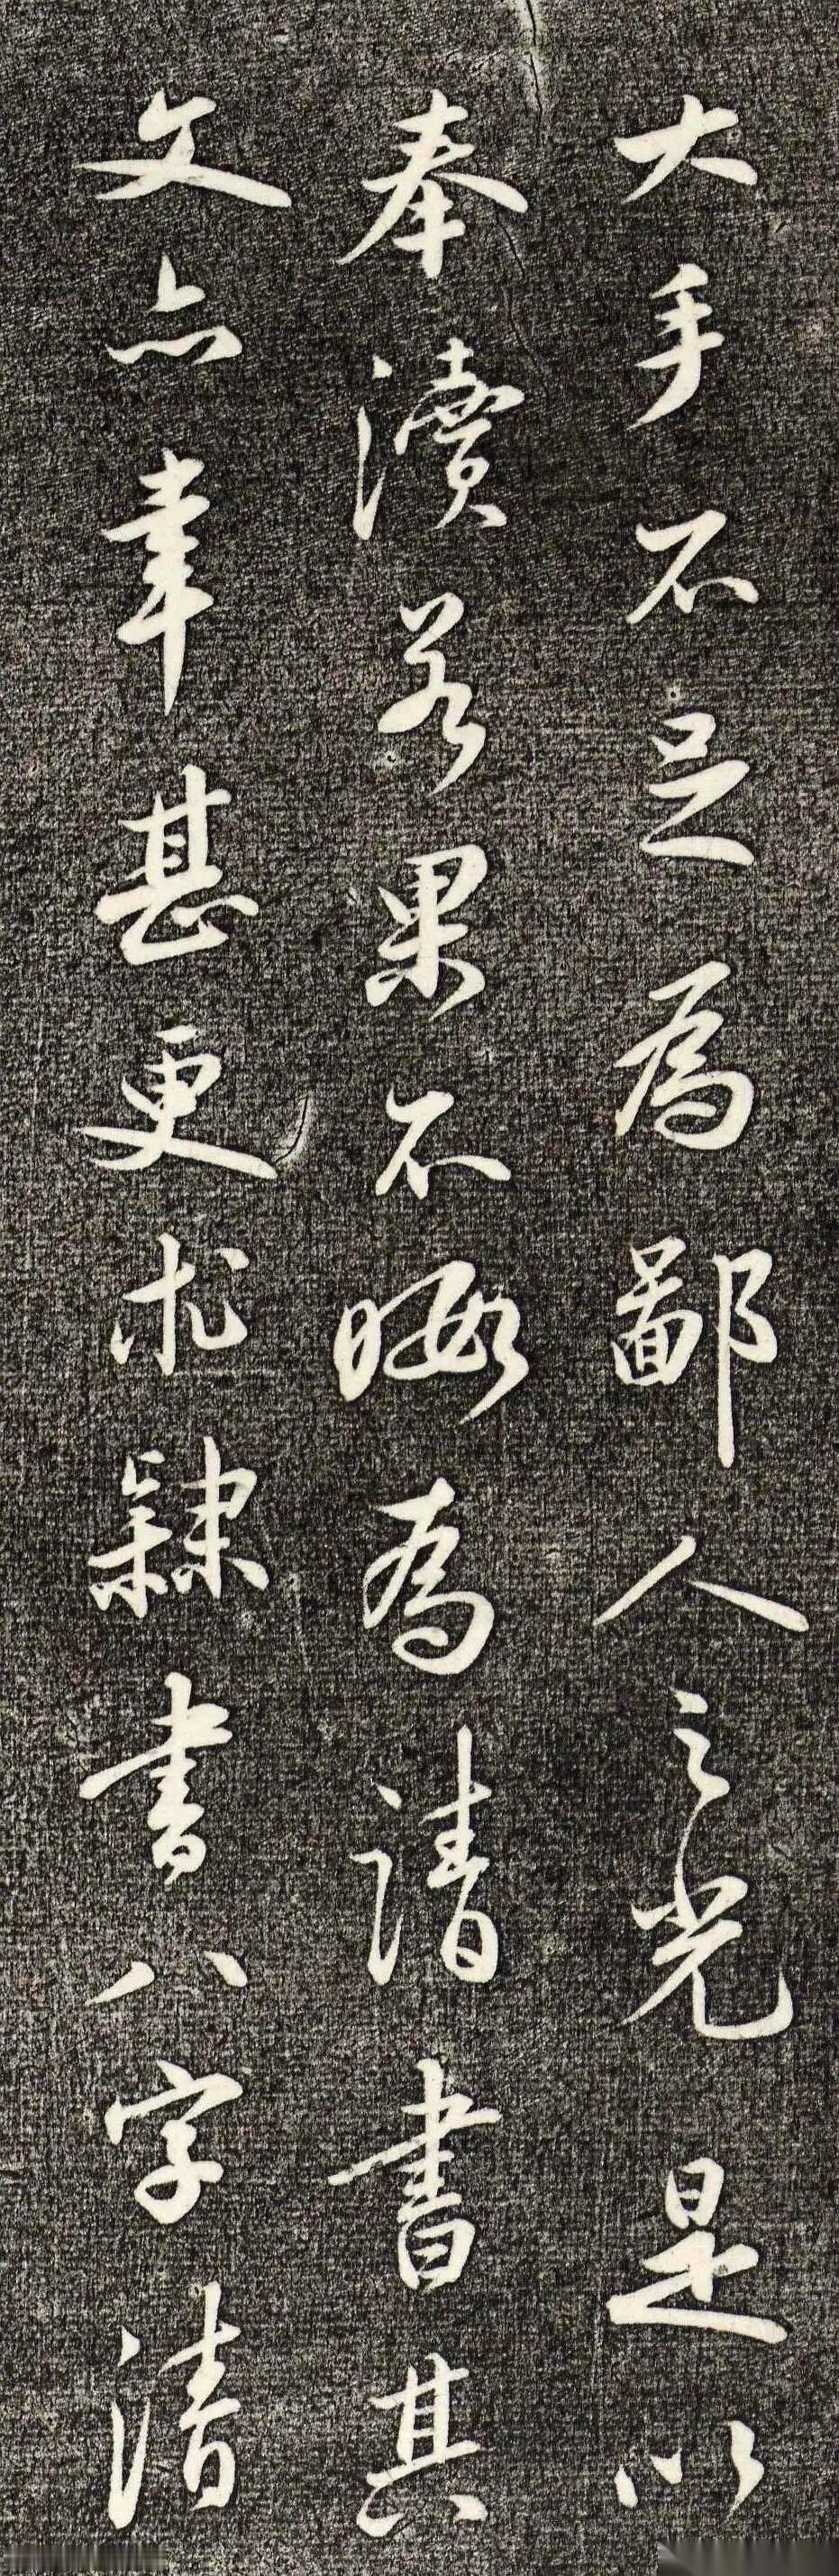 大手不足為鄙人之光是以
奉瀆若果不暇為請書其
文亦幸甚更求隸書八字清